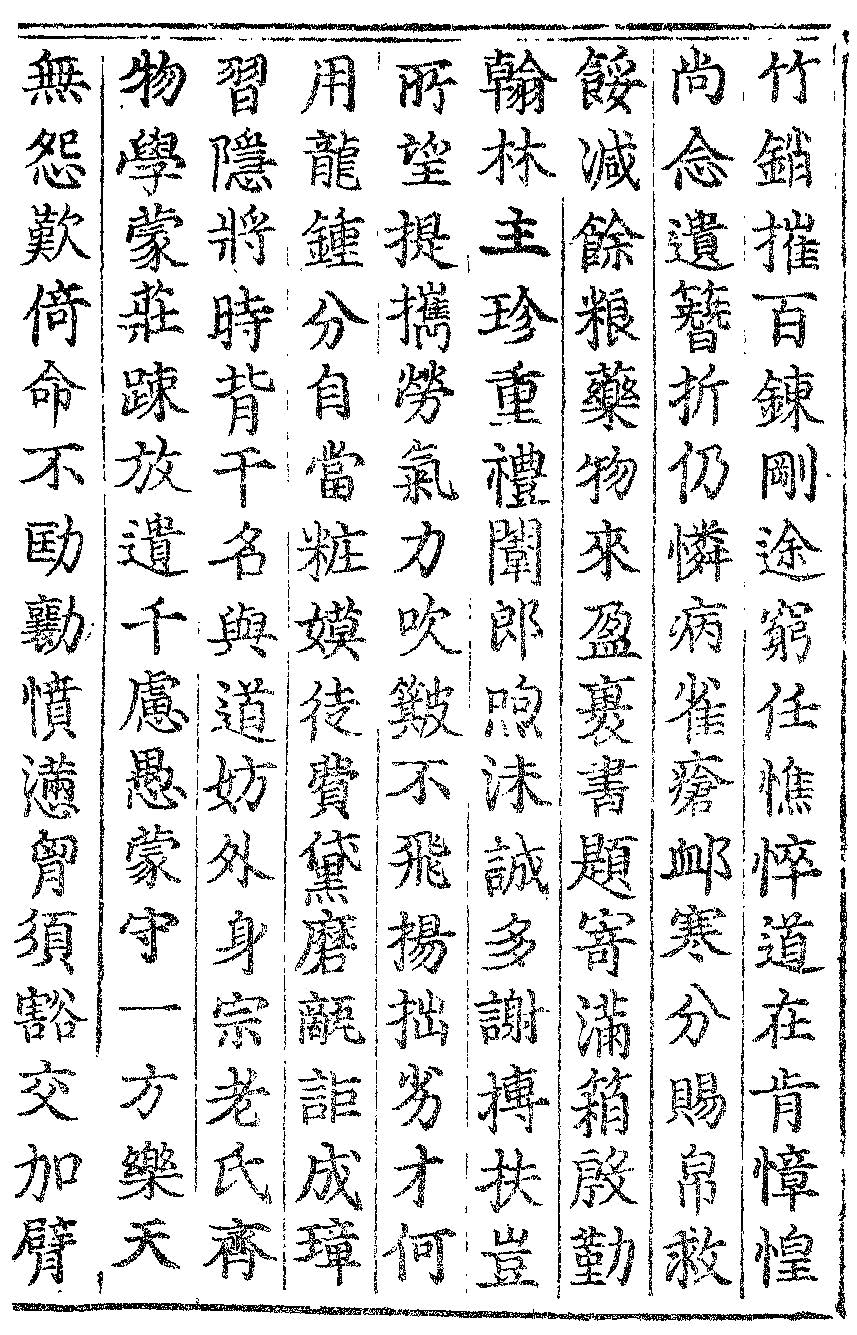 竹銷摧百鍊剛途窮任憔悴道在肯慞惶
尚念遺簪折仍憐病雀瘡卹寒分賜帛救
餒減餘粮藥物來盈裹書題寄滿箱殷勤
翰林主珍重禮闈郎煦沫誠多謝摶扶豈
所望提攜勞氣力吹簸不飛揚拙劣才何
用龍鍾分自當粧嫫徒費黛磨甋詎成璋
習隱將時背干名與道妨外身宗老氏齊
物學蒙莊踈放遺千慮愚蒙守一方樂天
無怨歎倚命不劻勷憤懣胷須豁交加臂